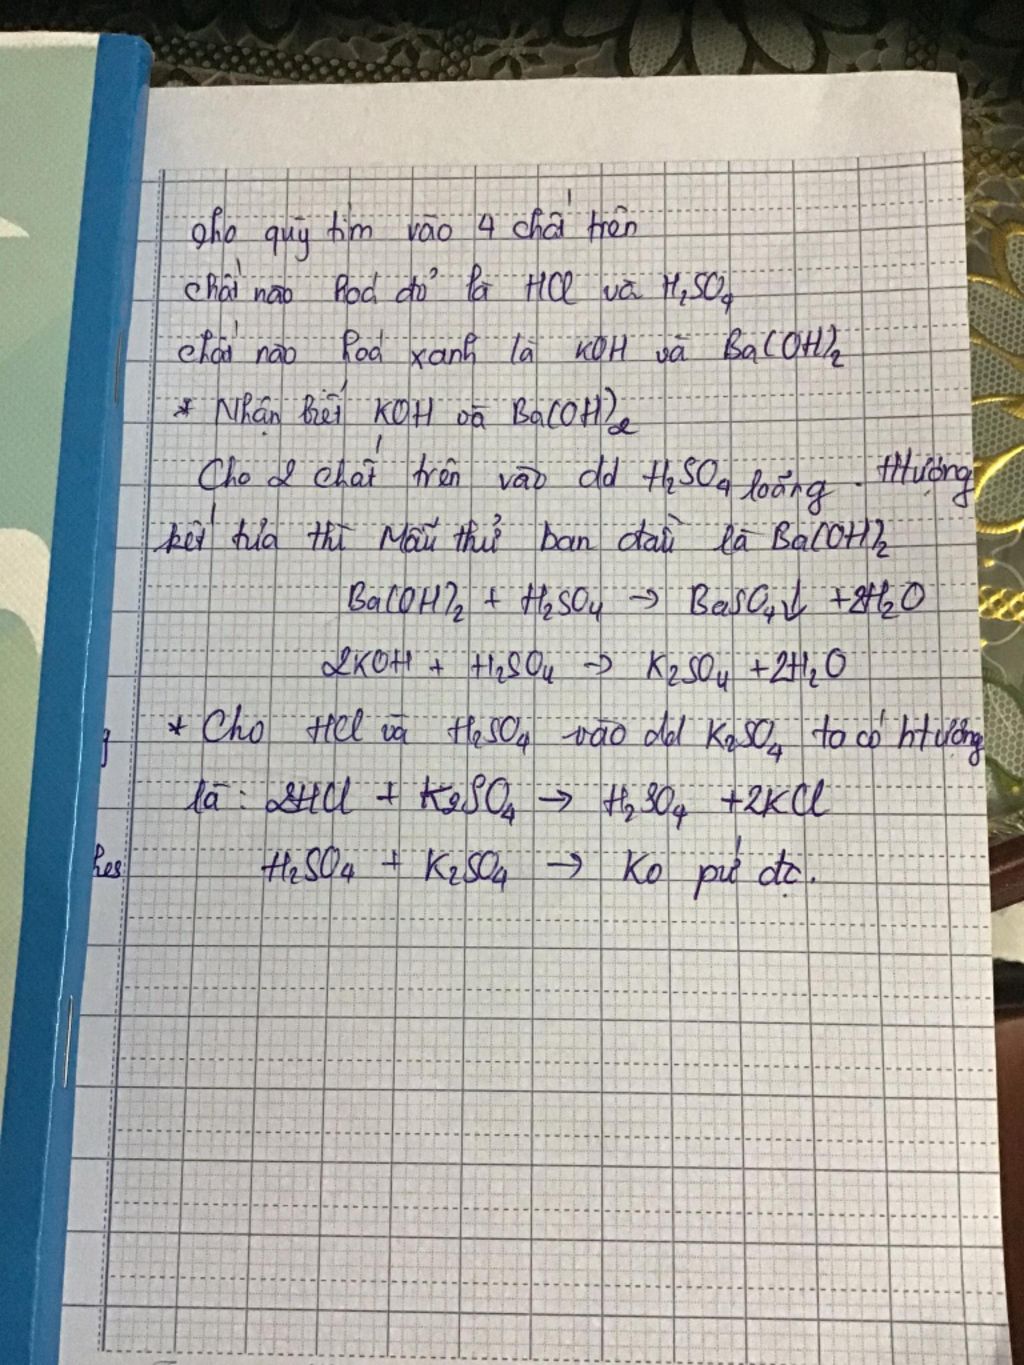 Cho quỳ tím vào 4 chất trên
chất nào hoá đỏ là HCl và H₂SO₄
chất nào hoá xanh là KOH và Ba(OH)₂
* Nhận biết KOH và Ba(OH)₂
Cho 2 chất trên vào dd H₂SO₄ loãng. Htượng
kết tủa thì Mẫu thử ban đầu là Ba(OH)₂
Ba(OH)₂ + H₂SO₄ → BaSO₄↓ + 2H₂O
2KOH + H₂SO₄ → K₂SO₄ + 2H₂O
* Cho HCl và H₂SO₄ vào dd K₂SO₄ ta có htượng
là: 2HCl + K₂SO₄ → H₂SO₄ + 2KCl
H₂SO₄ + K₂SO₄ → Ko pứ đc.